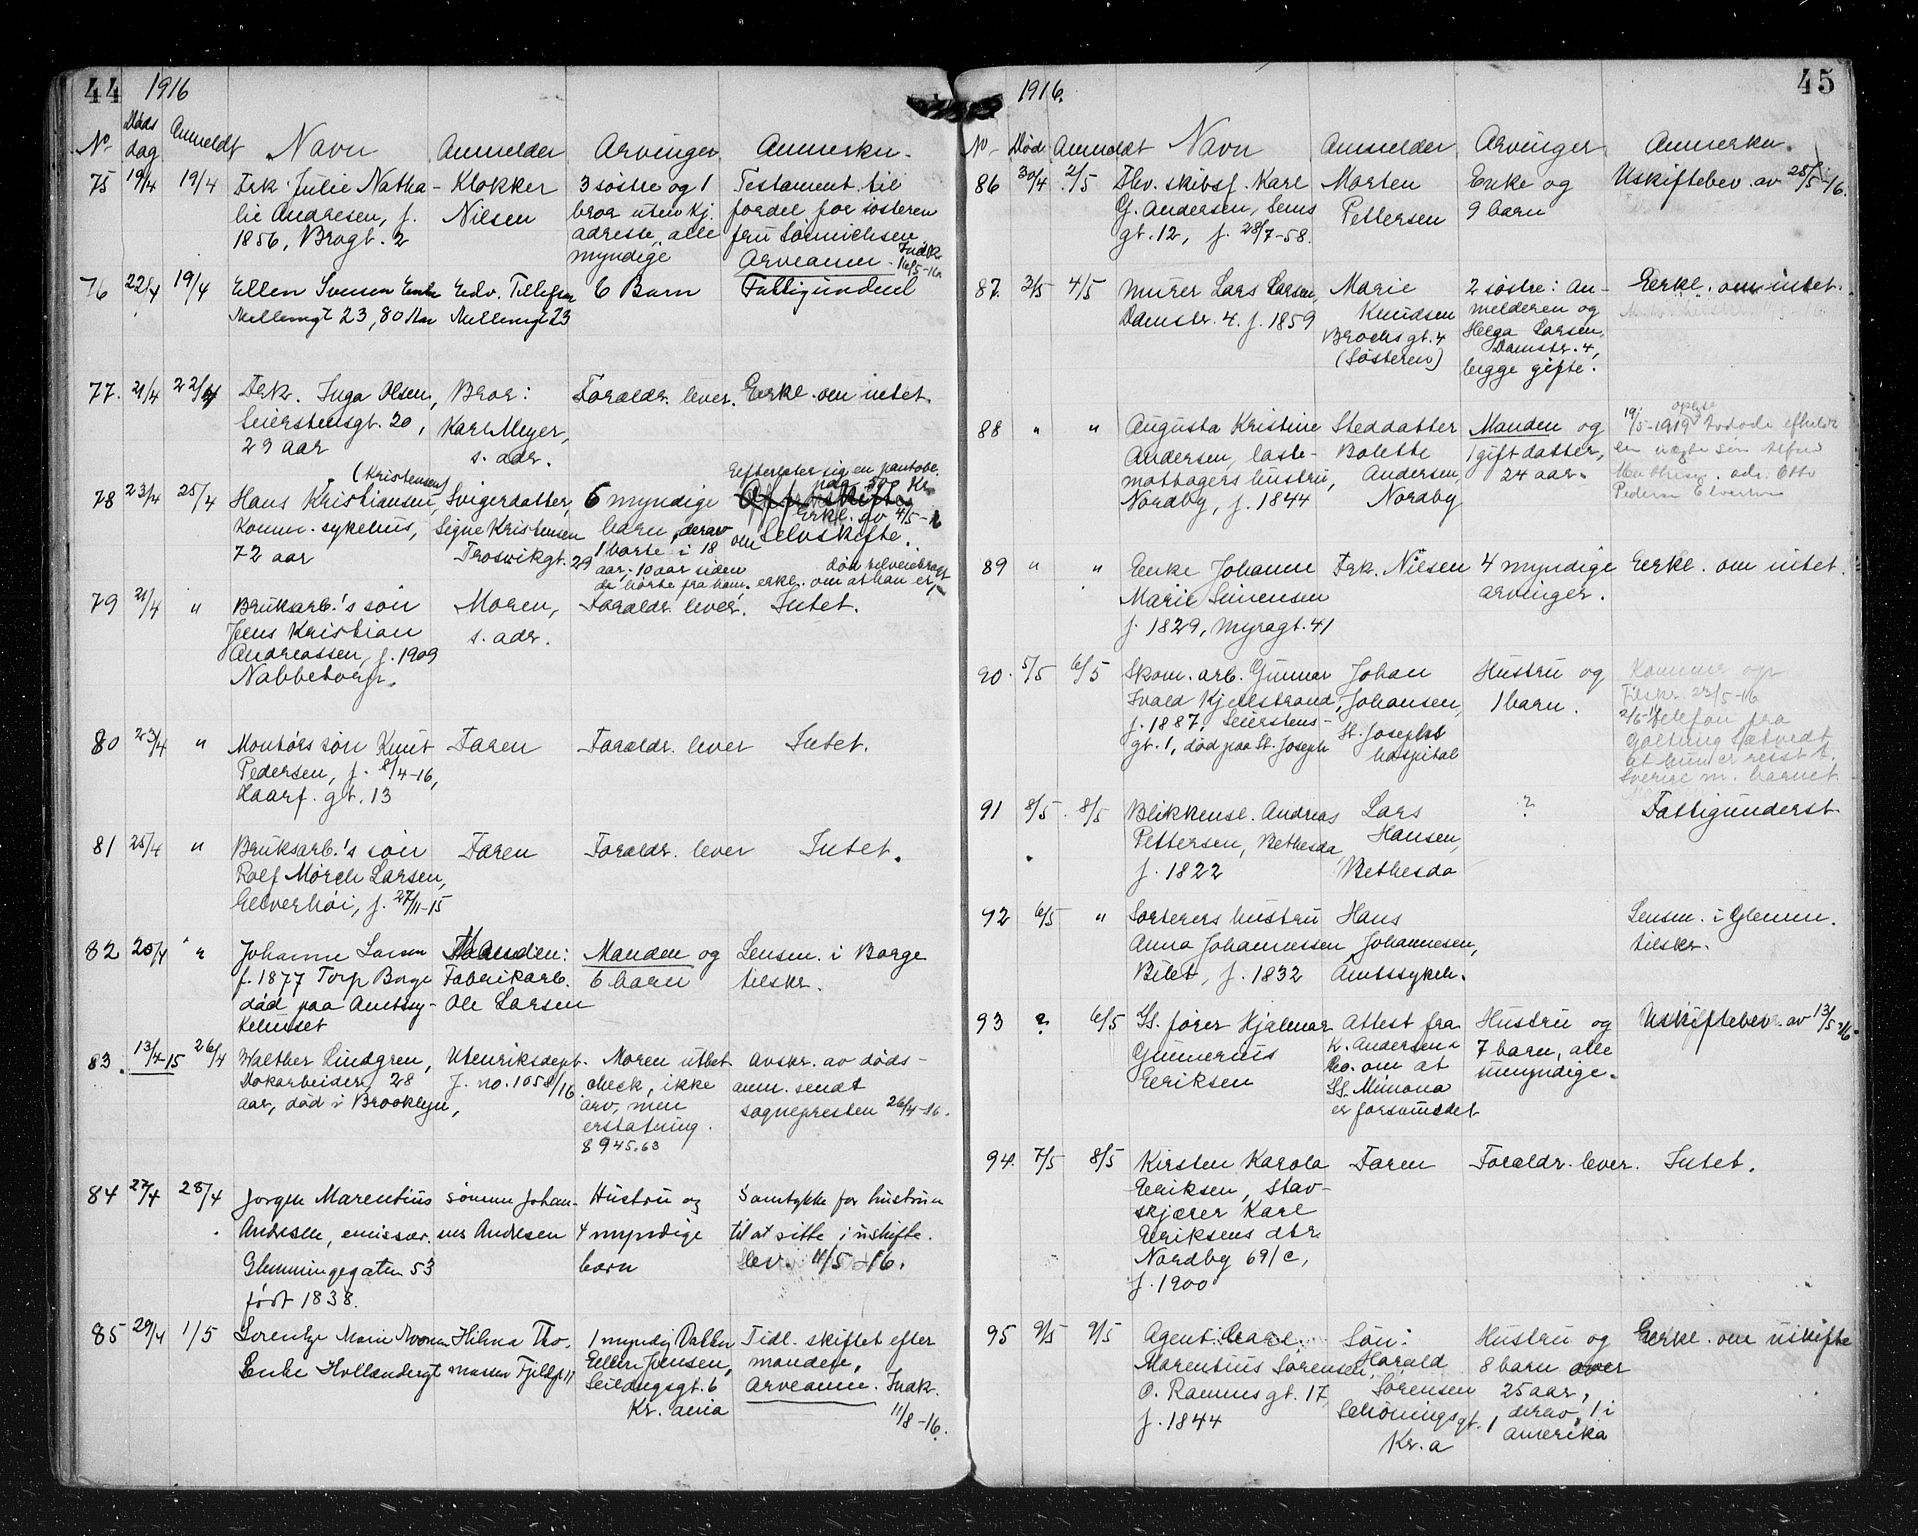 44 1916
No Døds dag Anmeldt Navn Anmelder Arvinger Anmerkn.
75 19/4 19/4 Frk. Julie Natha- Klokker 3 søstre og 1 Testament til
lie Andresen, f. Nilsen bror uten kj. fordel for søsteren
1856, Brogt. 2 adresse, alle fru
myndige Arveanm. 16/5-16.
76 22/4 19/4 Ellen Svensen Enke Edv. Tellefsen 6 Barn Fattigunderst
Mellemgt 23, 80 Aar Mellemgt 23
77. 21/4 22/4 Frk. Inga Olsen, Bror: Forældr. lever. Erkl. om intet.
Seierstensgt. 20, Karl Meyer,
29 aar s. adr.
(Kristensen) Efterlater sig en pantobl.
78 23/4 25/4 Hans Kristiansen, Svigerdatter, 6 myndige
Komm. sykehus, Signe Kristensen barn, derav Erkl. av 4/5-16
72 aar Trosvikgt. 29 1 borte i 18 om Selvskifte.
aar, 10 aar siden
de hørte fra ham, erkl. om at han er
79 21/4 " Bruksarb.'s søn Moren, Forældr. lever. Intet.
Jens Kristian s. adr.
Andreassen, f. 1909
Nabbetorp.
80 23/4 " Montørs søn Knut Faren Forældr. lever Intet.
Pedersen, f. /4-16,
Haarf. gt. 13
81 25/4 " Bruksarb.'s søn Faren Forældr. lever Intet.
Rolf Mørch Larsen,
Gelverhøi, f. 27/11-15
82 25/4 " Johanne Larsen Manden: Manden og Lensm. i Borge
f. 1877 Torp Borge Fabrikarb. 6 barn tilskr.
død paa Amtssy- Ole Larsen
kehuset
83. 13/4-15 26/4 Walther Lindgren, Utenriksdept. Moren utbet. Avskr. av døds-
Dokarbeider, 28 J. no. 1058/16 check, ikke anm. sendt
aar, død i Brooklyn, arv, men sognepresten 26/4-16.
erstatning.
8945.63
84 27/4 28/4 Jørgen Marentius sønnen Johan- Hustru og Samtykke for hustruen
Andresen, emissær. nes Andresen 4 myndige til at sitte i uskifte.
Glemmingegaten 53 barn Lev. 11/5 16.
født 1838.
85 29/4 1/5 Lorentze Marie Hilma Tho- 1 myndig Datter Tidl. skiftet efter
Enke Hollendergt massen Fjeldgt 11 Ellen Jensen, manden,
Seildugsgt. 6 Arveanm. Indk.
Kr. ania 11/8-16.
1916. 45
No Død Anmeldt Navn Anmelder Arvinger Anmerkn.
86 30/4 2/5 Fhv. skibsf. Karl Morten Enke og Uskiftebev. av 25/5-16.
G. Andersen, Sems Pettersen 9 barn
gt. 12, f. 28/7-58.
87. 3/5 4/5 Murer Lars Larsen, Marie 2 søstre: An- Erkl. om intet.
Damstr. 4. f. 1859 Knudsen melderen og
Brochsgt. 4 Helga Larsen,
(Søsteren) Damstr. 4,
begge gifte.
88 " " Augusta Kristine Steddatter Manden og 19/5-1919
Andersen, laste- Bolette 1 gift datter,
mottagers hustru, Andersen, 24 aar.
Nordby, f. 1844 Nordby
89 " " Enke Johanne Frk. Nilsen 4 myndige Erkl. om intet.
Marie Simensen arvinger.
f. 1829, Myragt. 41
90. 5/5 6/5 Skom. arb. Gunnar Johan Hustru og Kommer op
Ivald Kjellstrand, Johansen, 1 barn. Tilskr. 22/5-16
f. 1887, Seierstens- St. Josephs telefon fra
gt. 1, død paa St. Joseph hospital
at hun er reist t.
Sverige m. barnet.
91 8/5 8/5 Blikkensl. Andreas Lars ? Fattigunderst
Pettersen, Bethesda, Hansen,
f. 1822 Bethesda
92 6/5 " Sorterers hustru Hans Lensm. i Glemm.
Anna Johannessen Johannesen, tilskr.
Bilet, f. 1832 Amtssykeh.
93 ? 6/5 Ss. fører Hjalmar Attest fra Hustru og Uskiftebev. av 13/5-16.
Gunnerius K. Andersen & 7 barn, alle
Eriksen Co. om at umyndige.
Ss. Mimona
er forsvundet
94. 7/5 8/5 Kirsten Karola Faren Forældr. lever. Intet.
Eriksen, Stav-
skjærer Karl
Eriksens dtr.
Nordby 69/c,
f. 1900
95 9/5 9/5 Agent Carl Søn: Hustru og Erkl. om uskifte
Marentius Sørensen, Harald 8 barn over
O. Ramms gt. 17, Sørensen 25 aar,
f. 1844 Schøningsgt. 1 derav 1 i
Kr.a Amerika